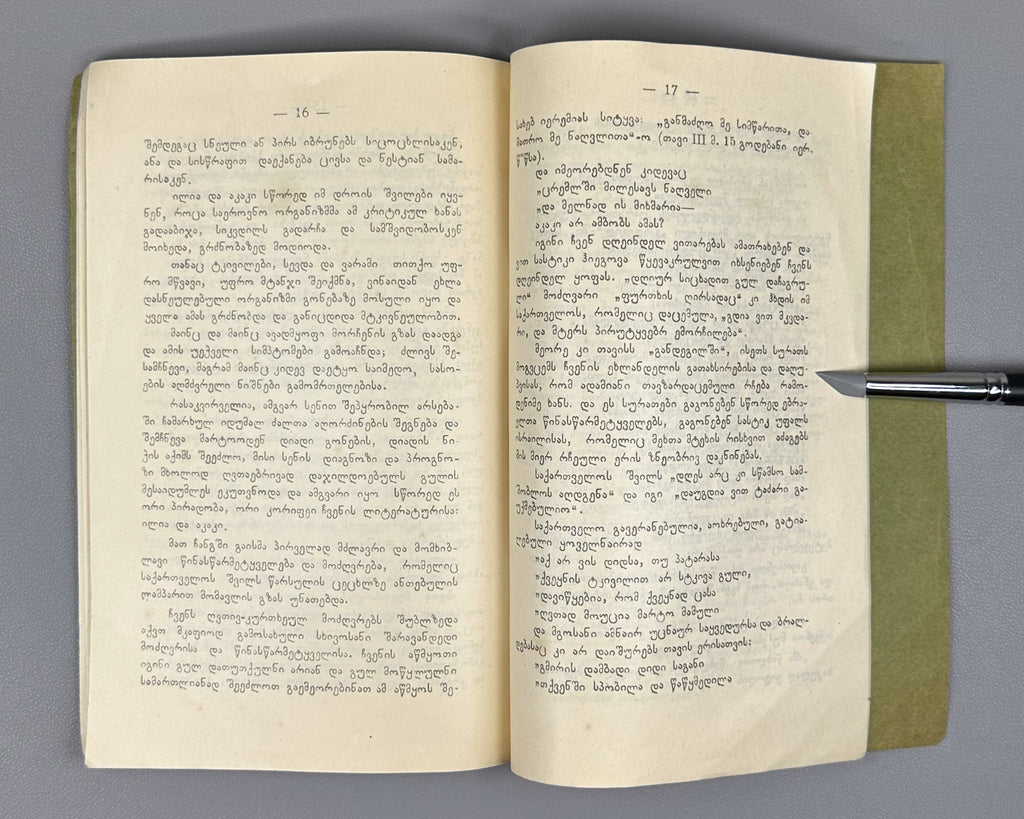 — 16 —
შემდეგაც სნეული ან პირს იბრუნებს სიცოცხლისაკენ,
ანა და სისწრაფით დაექანება ცივსა და ნესტიან სამა-
რისაკენ.
ილია და აკაკი სწორედ იმ დროის შვილები იყვ-
ნენ, როცა საეროვნო ორგანიზმმა ამ კრიტიკულ ხანას
გადააბიჯა, სიკვდილს გადარჩა და სამშვიდობოსკენ
მოიხედა, გრძნობაზედ მოდიოდა.
თანაც ტკივილები, სევდა და ვარამი თითქო უფ-
რო მწვავი, უფრო მტანჯი შეიქმნა, ვინაიდან ეხლა
დასნეულებული ორგანიზმი გონებაზე მოსული იყო და
ყველა ამას გრძნობდა და განიცდიდა მტკივნეულობით.
მაინც და მაინც ავადმყოფი მორჩენის გზას დაადგა
და ამის უეჭველი სიმპტომები გამოაჩნდა; ძლივს შე-
სამჩნევი, მაგრამ მაინც კიდევ დაეტყო საიმედო, სასო-
ების აღმძვრელი ნიშნები გამომრთელებისა.
რასაკვირველია, ამგვარ სენით შეპყრობილ არსება-
ში ჩამარხულ იდუმალ ძალთა აღორძინების შეგნება და
შემჩნევა მარტოოდენ დიადი გონების, დიადის ნი-
ჭის აქიმს შეეძლო, მისი სენის დიაგნოზი და პროგნო-
ზი მხოლოდ ღვთაებრივად დაჯილდოებულს გულის
მესაიდუმლეს ეკუთვნოდა და ამგვარი იყო სწორედ ეს
ორი პირადობა, ორი კორიფეი ჩვენის ლიტერატურისა:
ილია და აკაკი.
მათ ჩანგში გაისმა პირველად მძლავრი და მომხიბ-
ლავი წინასწარმეტყველება და მოძღვრება, რომელიც
საქართველოს შვილს წარსულის ცეცხლზე ანთებულის
ლამპარით მომავლის გზას უნათებდა.
ჩვენს ღვთივ-კურთხეულ მოძღვრებს შუბლზედა
აქვთ მკაფიოდ გამოსახული სხივოსანი შარავანდედი
მოძღვრისა და წინასწარმეტყველისა. ჩვენის აწმყოთი
იგინი გულ დათუთქულნი არიან და გულ მოწყლულნი
სამართლიანად შეეძლოთ გაემეორებინათ ამ აწმყოს შე-
— 17 —
სახებ იერემიას სიტყვა: „განმაძღო მე სიმწარითა, და-
მათრო მე ნაღვლითა“-ო (თავი III მ. 15 გოდებანი იერ.
წ'წსა).
და იმეორებდნენ კიდევაც
„ცრემლში მილესავს ნაღველი
„და მელნად ის მიხმარია—
აკაკი არ ამბობს ამას?
იგინი ჩვენ დღეინდელ ვითარებას ამათრახებენ და
ვით სასტიკი ჰიეგოვა წყევაკრულვით იხსენიებენ ჩვენს
დღეინდელ ყოფას. „დღიურ სიცხადით გულ დაჩაგრუ-
ლი“ მოძღვარი „ფურთხის ღირსადაც“ კი ჰხდის იმ
საქართველოს, რომელიც დაცემულა, „გდია ვით მკვდა-
რი, და მტერს პირუტყვებრ ემორჩილება“.
მეორე კი თავისს „განდეგილში“, ისეთს სურათს
მოგვცემს ჩვენის ეხლანდელის გათახსირებისა და დაღუ-
პვისას, რომ ადამიანი თავზარდაცემული რჩება რამო-
დენიმე ხანს. და ეს სურათები გაგონებენ სწორედ ებრა-
ელთა წინასწარმეტყველებს, გაგონებენ სასტიკ უფალს
ისრაილისას, რომელიც მეხთა მტეხის რისხვით აძაგებს
მის მიერ რჩეული ერის ზნეობრივ დაკნინებას.
საქართველოს შვილს „დღეს არც კი სწამსო სამ-
შობლოს აღდგენა“ და იგი „დაუგდია ვით ტაძარი გა-
უქმებულიო“.
საქართველო გავერანებულია, აოხრებული, გატია-
ლებული ყოველნაირად
„აქ არ ვის დიდსა, თუ პატარასა
„ქვეყნის ტკივილით არ სტკივა გული,
„დავიწყებია, რომ ქვეყნად ცასა
„ღვთად მოუცია მარტო მამული
და მგოსანი ამნაირ უცნაურ საყვედურსა და ბრალ-
დებასაც კი არ დაიშურებს თავის ერისათვის:
„გმირის დამბადი დიდი საგანი
„თქვენში სპობილა და წაწყმედილა